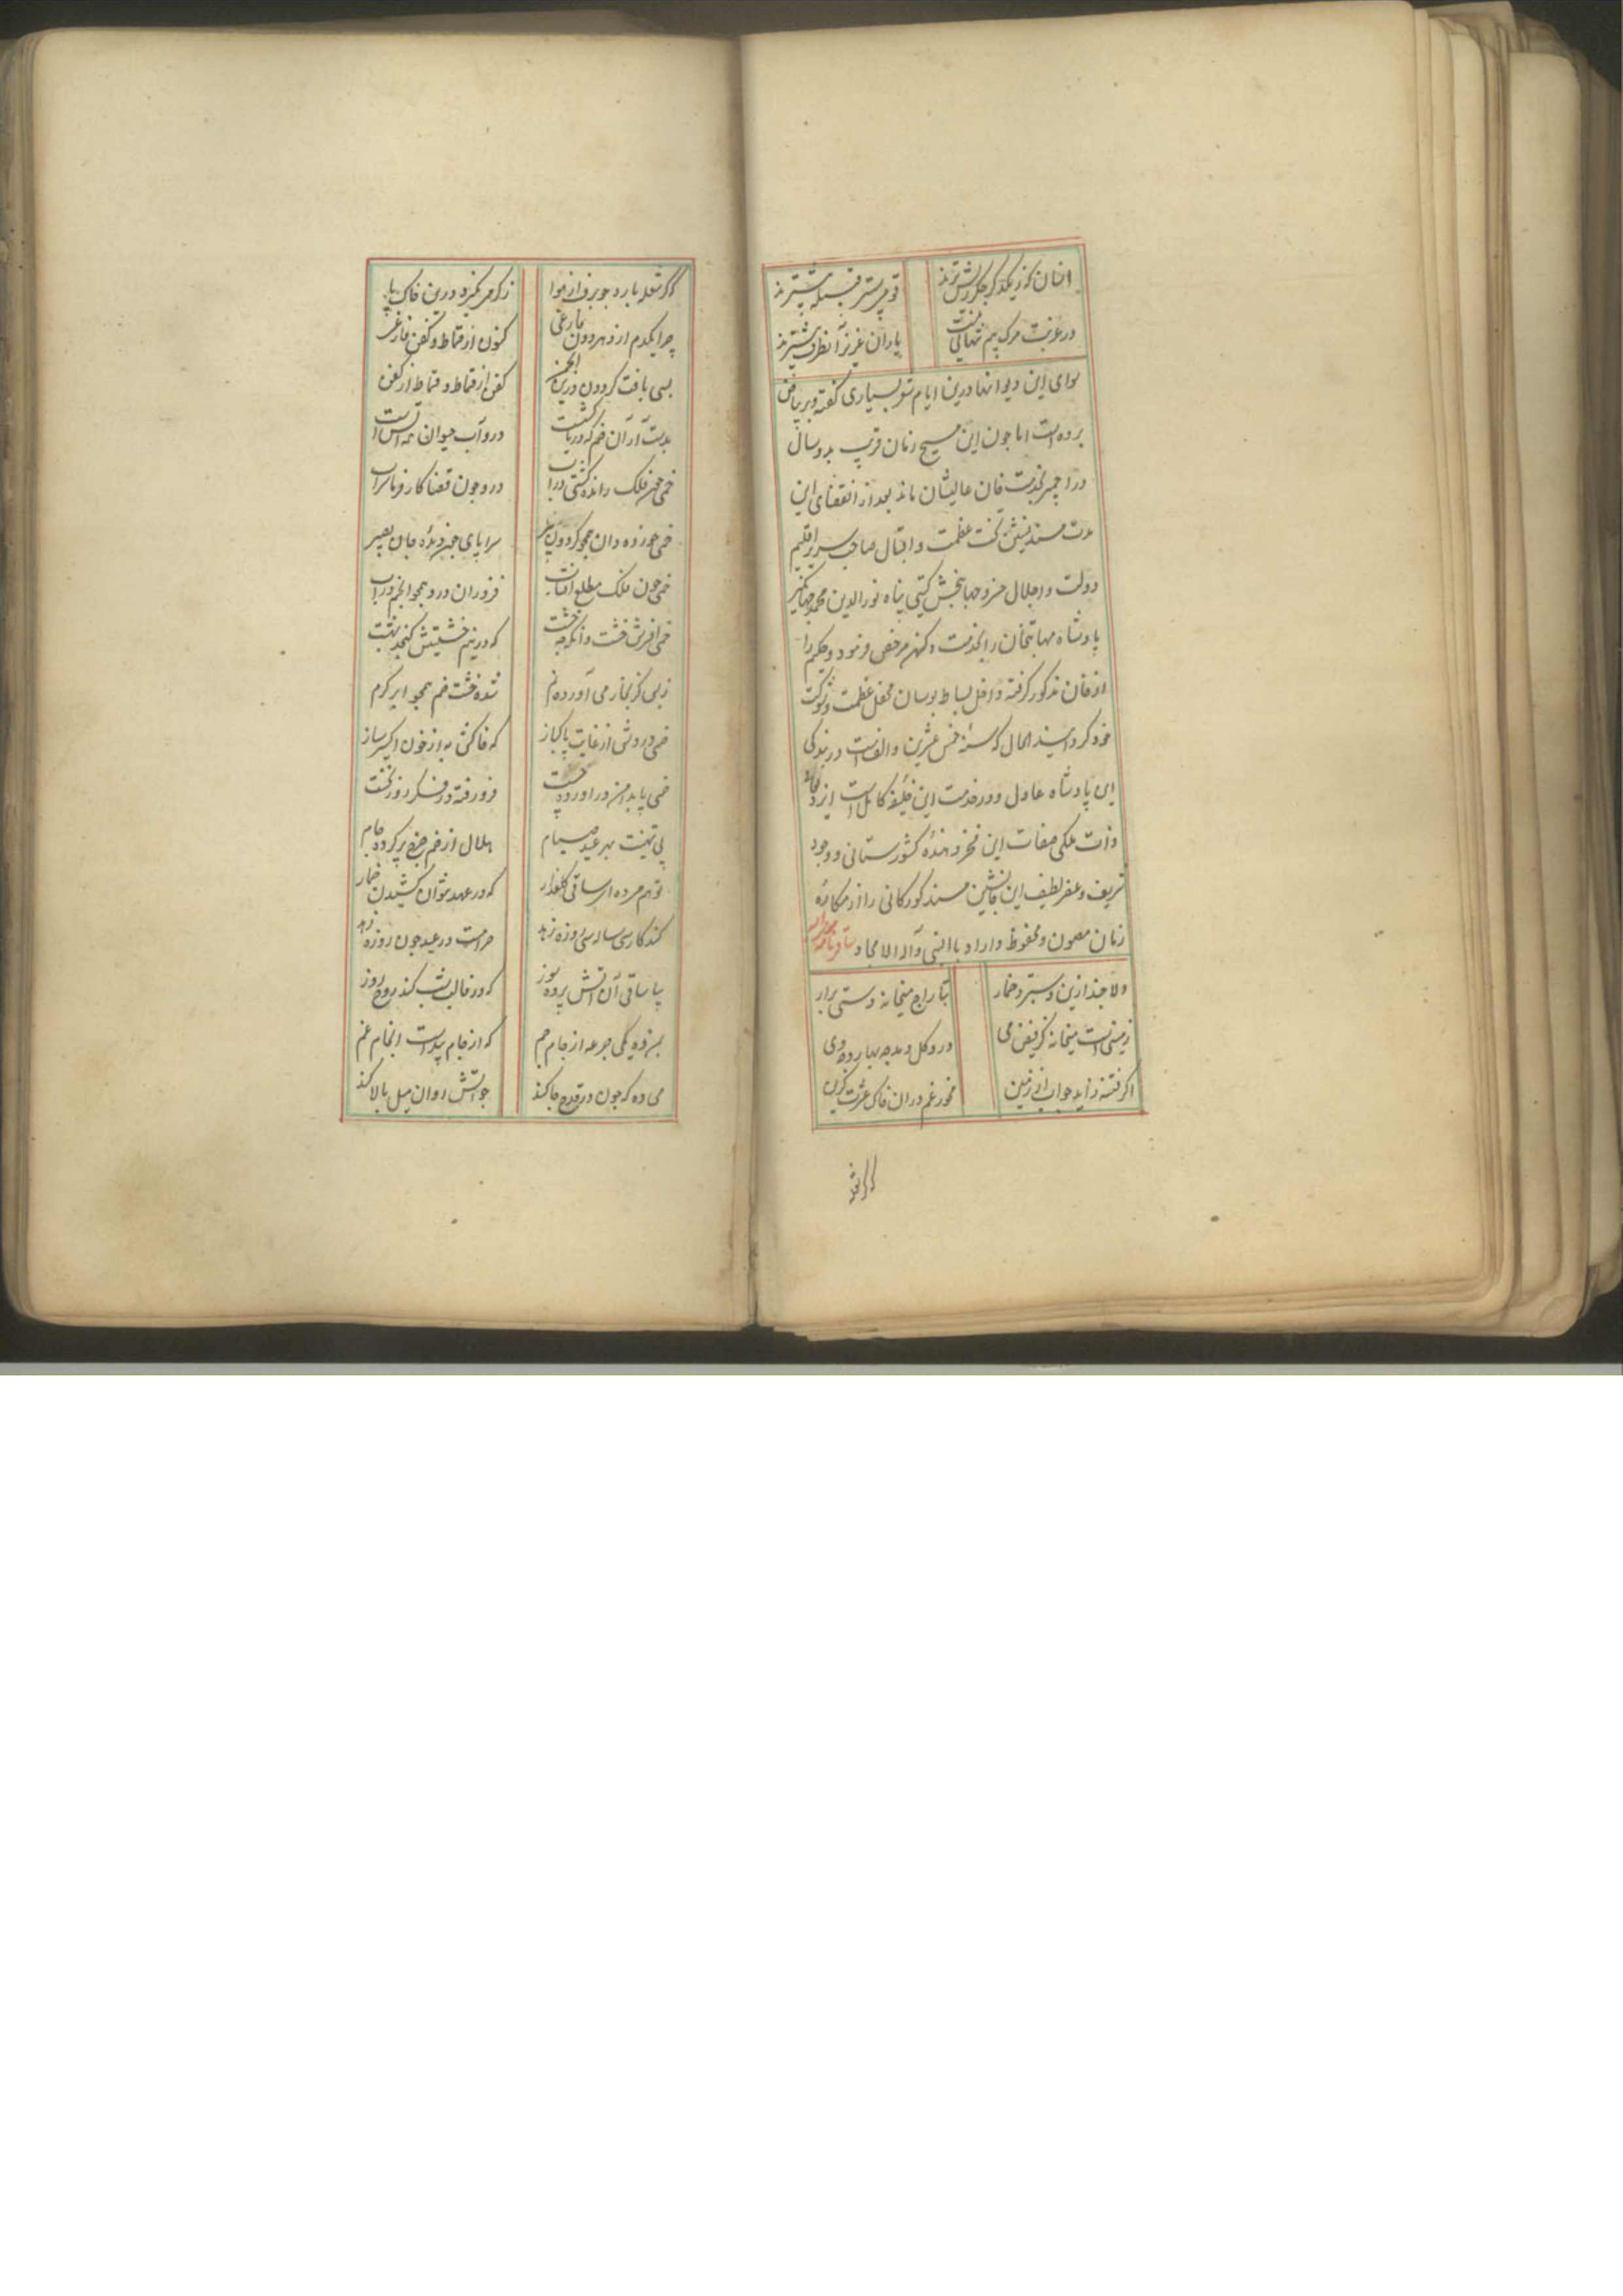 در غربت مرگ بیم تنهایی نیست
یاران عزیز آنطرف بیشترند
سوای این دیوانها درین ایام شعر بسیاری گفته و بر بیاض
برده است اما چون این مسیح زمان قریب بدو سال
در اجمیر بخدمت خان عالیشان ماند بعد از انقضای این
مدت مسند نشین تخت عظمت و اقبال صاحب سریر اقلیم
دولت و اجلال خسرو جهانبخش گیتی پناه نورالدین محمد جهانگیر
پادشاه مهابتخان را بخدمت دکهن مرخص فرمود و حکیم را
از خان مذکور گرفته داخل بساط بوسان محفل عظمت و شوکت
خود گردانید الحال که سنه خمس عشرین و الف است در بندگی
این پادشاه عادل و در خدمت این خلیفه کامل است ایزد تعالی
ذات ملکی صفات این فخر دهنده کشورستانی و وجود
شریف و عنصر لطیف این جانشین مسند کورکانی را از مکاره
زمان مصون و محفوظ داراد بالنبی و آله الامجاد ساقی نامه
دلا چند ازین بستر و خمار
بتاراج میخانه دستی برار
زمینی است میخانه کز فیض می
درو گل دمد چه بهار و چه دی
اگر فتنه زاید جواب از زمین
مخور غم در آن خاک عشرت گزین
که گر شعله بارد چو برف از هوا
چرا یکدم از دهر دون فارغی
کنون از قماط و کفن فارغی
بسی بافت گردون درین انجمن
کفن از قماط و قماط از کفن
بدست آر آن خم که دریا کشست
درو آب حیوان نه آتش است
خمی چون فلک رانده کشتی در آب
درو چون قضا کار فرما شراب
سراپای چون دیده جان بصیر
خمی چون فلک مطلع آفتاب
فروزان درو همچو انجم حباب
که در نیم خشتش گنجد بهشت
ز بس کز بخار می آورده نم
شده خشت خم همچو ابر کرم
خمی درد نوشی از غایت پاکباز
که خاکش به از خون اکسیر ساز
فرو رفته در فکر روز نخست
پی تهنیت بهر عید صیام
هلال از خم چرخ پر کرده جام
تو هم مرده ای ساقی گلعذار
که در عهد نتوان کشیدن خمار
حرامست در عید چون روزه زهد
بیا ساقی آن آتش پرده سوز
که در قالب شب کند روح روز
بمن ده یکی جرعه از جام جم
که از جام پیداست انجام غم
می ده که چون در قدح جا کند
چو آتش روان میل بالا کند
که گر شعله